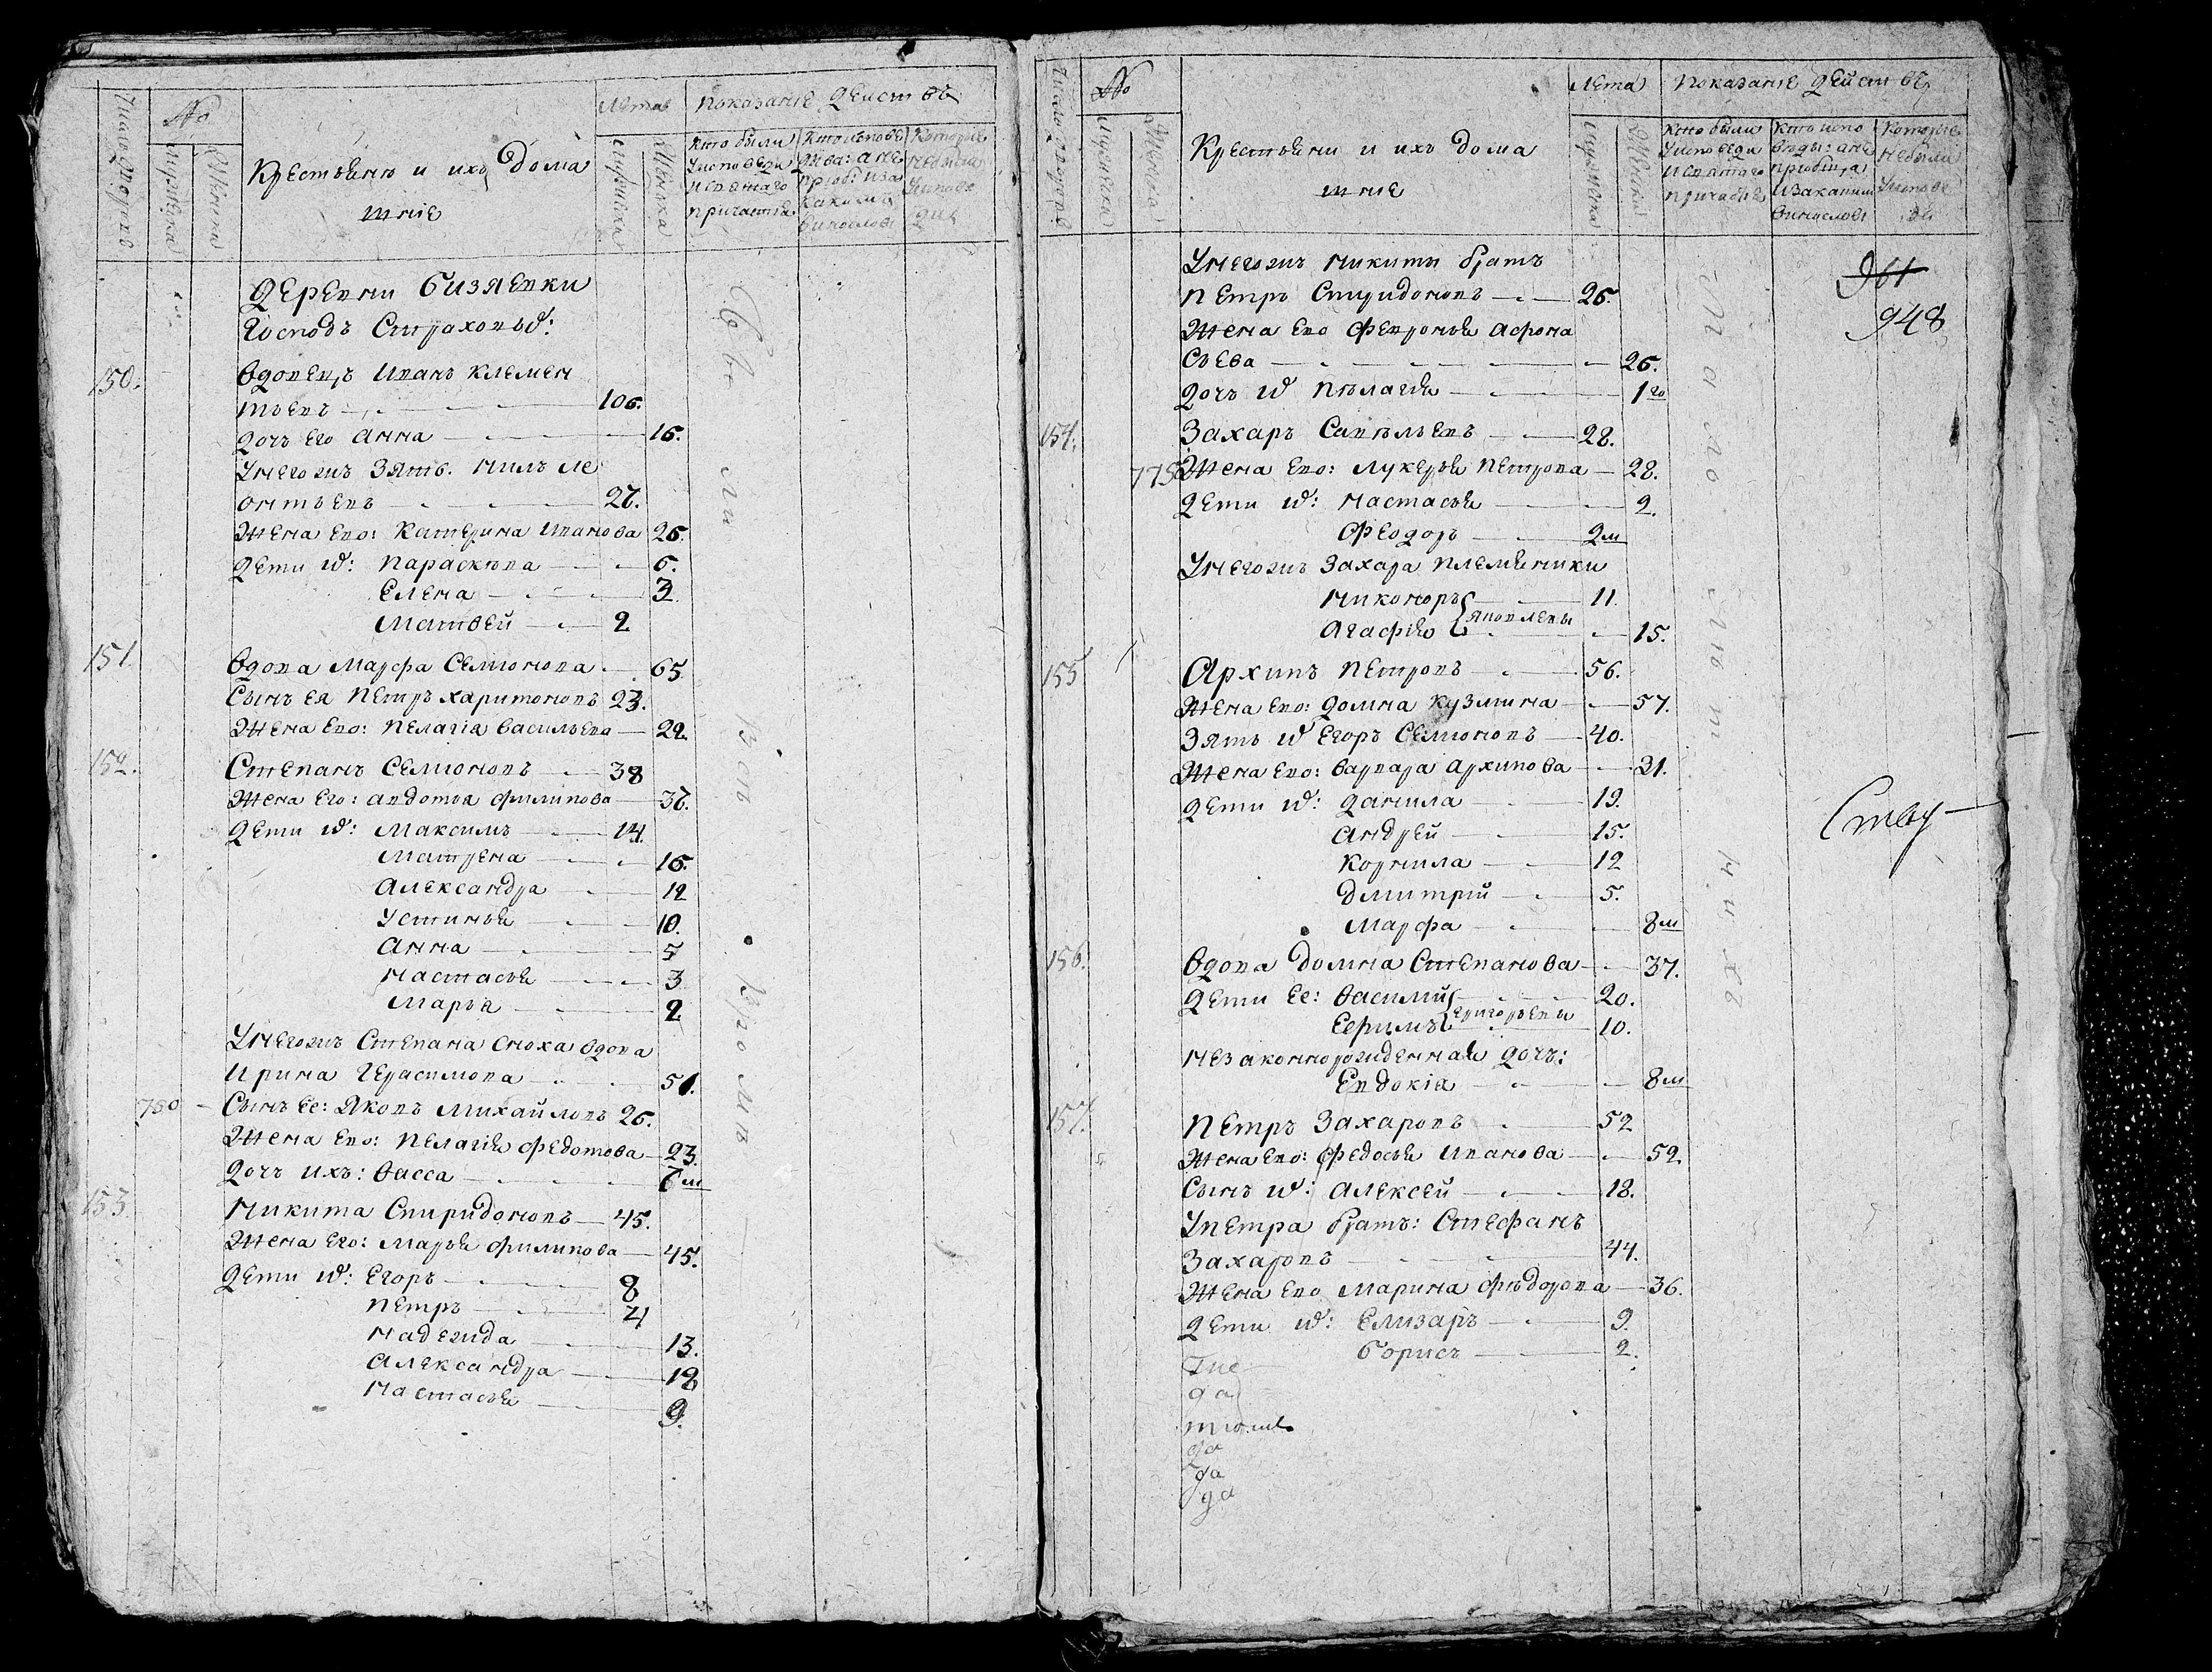 Число дворовъ
No
Мужеска
Женска
Крестьяню и ихъ дома
шніе
Лета
Мужска
Женска
Показаніе действъ
Кто были
Уисповеди
И святаго
причастія
Деревни Бизяевки
Господъ Страховыхъ:
150. Вдовецъ Иванъ Клемен
тьевъ 106.
дочь Его Анна 16.
Унегожъ Зять. Нилъ Ле
онтьевъ 27.
Жена Ево: Катерина Иванова 26.
Дети их: Параскюва 6.
Елена 3
Матвей 2
151. Вдова Марфа Семионова 65
Сынъ ея Петръ Харитоновъ 23.
Жена Ево: Пелагіа Васильева 22.
152. Степанъ Семионовъ 38
Жена Его: Авдотья Филипова 37.
Дети их: Максимъ 14.
Матрена 16.
Александра 12
Устинья 10.
Анна 5
Настасья 3
Марья 2
Унегожъ Степана Сноха вдова
Ирина Герасимова 51.
760 Сынъ Ее: Яковъ Михайловъ 26.
Жена Ево: Пелагія Федотова 23.
Дочь ихъ: Васса 7м
153 Никита Спиридоновъ 45.
Жена Его: Марья Филипова 45.
Дети их: Егоръ 8
Петръ 4
Надежда 13.
Александра 12
Настасья 9.
Число дворовъ
No
Мужеска
Женска
Крестьяни и ихъ дома
шніе
Лета
Мужеска
Женска
Показаніе действъ
Кто были
Уисповеди
И святаго
Причастія
Которые
Небыли
Уиспове
ди
Унегожъ Никиты братъ
Петръ Спиридоновъ 26.
Жена Ево Февронья Афона
Сьева 26.
Дочь их Пелагія 1го
961
948
154. Захаръ Савельевъ 28.
775 Жена Ево: Лукерья Петрова 28.
Дети их: Настасья 2.
Феодоръ 2м
Унегожъ Захара племянники
Никоноръ 11.
Яковлевы
Агафія 15.
155 Архипъ Петровъ 56.
Жена Ево: Домна Кузмина 57.
Зять их Егоръ Семионовъ 40.
Жена Ево: Варвара Архипова 31.
Дети их: Данила 19.
Андрей 15.
Корнила 12
Дмитрій 5.
Марфа 8м
156. Вдова Домна Степанова 37.
Дети Ее: Василий 20.
Григорьевы
Ефимъ 10.
Незаконнорожденная дочь:
Евдокіа 8м
157. Петръ Захаровъ 52
Жена Ево: Федосья Иванова 52.
Сынъ их: Алексей 18.
Упетра братъ: Стефанъ
Захаровъ 44.
Жена Ево Марина Федорова 36.
Дети их: Елизаръ 9.
Борисъ 2.
да
да
да
да